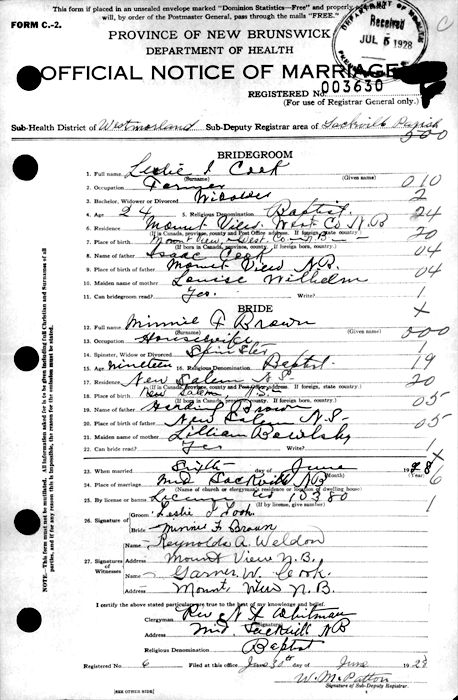 This form if placed in an unsealed envelope marked "Dominion Statistics—Free" and properly
will, by order of the Postmaster General, pass through the mails "FREE."
FORM C.-2.
PROVINCE OF NEW BRUNSWICK
DEPARTMENT OF HEALTH
OFFICIAL NOTICE OF MARRIAGE
DEPARTMENT OF HEALTH
Received
JUL 6 1928
REGISTERED No. 003630
(For use of Registrar General only.)
Sub-Health District of Westmorland Sub-Deputy Registrar area of Sackville Parish
500
BRIDEGROOM
1. Full name Leslie I Cook
(Surname) (Given names)
2. Occupation Farmer 010
3. Bachelor, Widower or Divorced Widower 2
4. Age 24 5. Religious Denomination Baptist 24
6. Residence Mount View West. Co N.B 20
(If in Canada, province, county and Post Office address. If foreign, state country)
7. Place of birth Mount View West. Co N.B
(If born in Canada, province, county. If foreign, state country)
8. Name of father Isaac Cook 04
9. Place of birth of father Mount View N.B.
10. Maiden name of mother Louise Wilhelm 04
11. Can bridegroom read? Yes. Write? 1
BRIDE
12. Full name Minnie F Brown
(Surname) (Given names)
13. Occupation Housekeeper 000
14. Spinster, Widow or Divorced Spinster 1
15. Age nineteen 16. Religious Denomination Baptist 19
17. Residence New Salem N.S. 20
(If in Canada, province, county and Post Office address. If foreign, state country)
18. Place of birth New Salem N.S.
(If born in Canada, province, county. If foreign, state country)
19. Name of father Brown 05
20. Place of birth of father New Salem N.S.
21. Maiden name of mother Lillian 05
22. Can bride read? Yes Write? 1
23. When married day of June 1928
(Month) (Year)
24. Place of marriage Mid Sackville NB 6
(Name of church or clergyman's residence or location of dwelling house)
25. By license or banns License 1
(If by license, give number)
26. Signature of
Groom Leslie I Cook
Bride Minnie F Brown
27. Signatures of Witnesses
Name Reynolds A. Weldon
Address Mount View N.B.
Name Garner W. Cook
Address Mount View N.B.
I certify the above stated particulars are true to the best of my knowledge and belief.
Clergyman Rev N Whitman
(Signature)
Address Mid Sackville NB
Religious Denomination Baptist
Registered No. 6 Filed at this office June 30th day of June 1928
W. M. Patton
Signature of Sub-Deputy Registrar.
[SEE OTHER SIDE]
NOTE. This form must not be mutilated. All information asked for is to be given including full Christian and Surnames of all
parties, and if for any reason this is impossible, the reason for the omission must be stated.